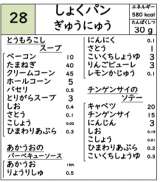 28
しょくパン
ぎゅうにゅう
エネルギー
780 kcal
たんぱくしつ
30 g
とうもろこし
スープ
ベーコン 10
たまねぎ 40
クリームコーン 45
ホールコーン 5
パセリ 0.5
とりがらスープ 3
しお 0.2
こしょう
ひまわりあぶら 0.3
あかうおの
バーベキューソース
あかうお
りょうりしゅ 0.5
にんにく 0.1
さとう 1
こいくちしょうゆ 3
りんごピューレ 3
レモンかじゅう 0.1
チンゲンサイの
ソテー
キャベツ 20
チンゲンサイ 15
にんじん 3
しお 0.1
こしょう
ひまわりあぶら 0.3
こいくちしょうゆ 0.5